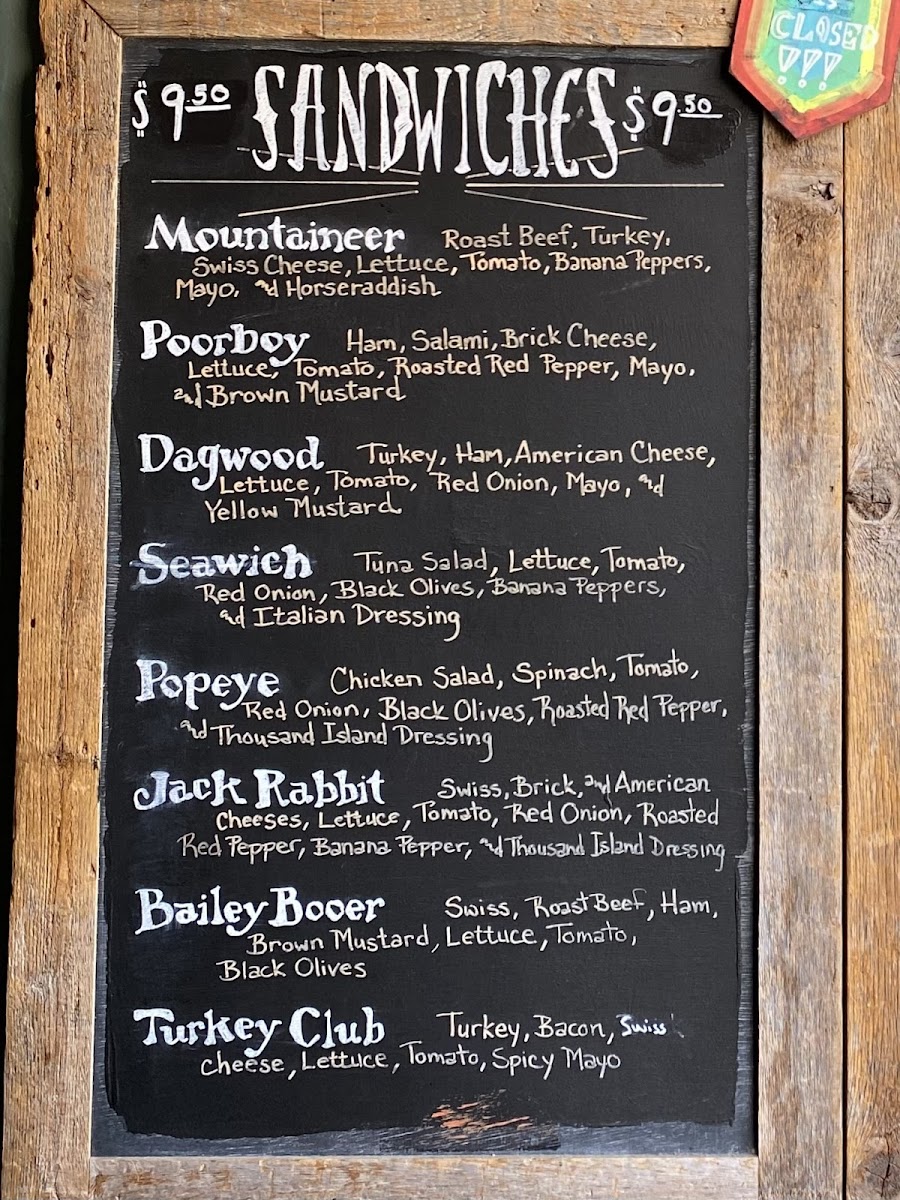 IS
CLOSED
!!!
$9.50 SANDWICHES $9.50
Mountaineer Roast Beef, Turkey,
Swiss Cheese, Lettuce, Tomato, Banana Peppers,
Mayo, and Horseraddish
Poorboy Ham, Salami, Brick Cheese,
Lettuce, Tomato, Roasted Red Pepper, Mayo,
and Brown Mustard
Dagwood Turkey, Ham, American Cheese,
Lettuce, Tomato, Red Onion, Mayo, and
Yellow Mustard
Seawich Tuna Salad, Lettuce, Tomato,
Red Onion, Black Olives, Banana Peppers,
and Italian Dressing
Popeye Chicken Salad, Spinach, Tomato,
Red Onion, Black Olives, Roasted Red Pepper,
and Thousand Island Dressing
Jack Rabbit Swiss, Brick, and American
Cheeses, Lettuce, Tomato, Red Onion, Roasted
Red Pepper, Banana Pepper, and Thousand Island Dressing
Bailey Booer Swiss, Roast Beef, Ham,
Brown Mustard, Lettuce, Tomato,
Black Olives
Turkey Club Turkey, Bacon, Swiss
Cheese, Lettuce, Tomato, Spicy Mayo